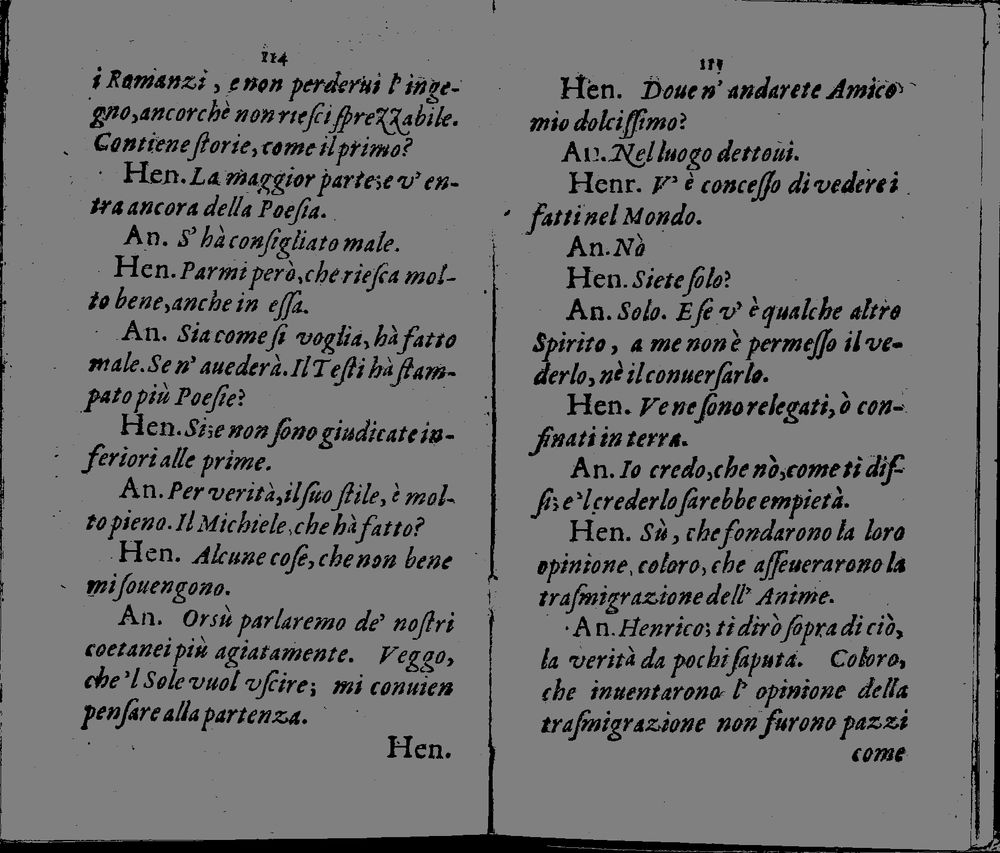 114
i Romanzi, e non perderui l' inge-
gno, ancorchè non riesci sprezzabile.
Contiene storie, come il primo?
Hen. La maggior parte; e v' en-
tra ancora della Poesia.
An. S' hà consigliato male.
Hen. Parmi però, che riesca mol-
to bene, anche in essa.
An. Sia come si voglia, hà fatto
male. Se n' auederà. Il Testi hà stam-
pato più Poesie?
Hen. Si; e non sono giudicate in-
feriori alle prime.
An. Per verità, il suo stile, è mol-
to pieno. Il Michiele, che hà fatto?
Hen. Alcune cose, che non bene
mi souengono.
An. Orsù parlaremo de' nostri
coetanei più agiatamente. Veggo,
che 'l Sole vuol vscire; mi conuien
pensare alla partenza.
Hen.
115
Hen. Doue n' andarete Amico
mio dolcissimo?
An. Nel luogo dettoui.
Henr. V' è concesso di vedere i
fatti nel Mondo.
An. Nò
Hen. Siete solo?
An. Solo. E se v' è qualche altro
Spirito, a me non è permesso il ve-
derlo, nè il conuersarlo.
Hen. Ve ne sono relegati, ò con-
finati in terra.
An. Io credo, che nò, come ti dis-
si; e 'l crederlo sarebbe empietà.
Hen. Sù, che fondarono la loro
opinione, coloro, che asseuerarono la
trasmigrazione dell' Anime.
An. Henrico; ti dirò sopra di ciò,
la verità da pochi saputa. Coloro,
che inuentarono l' opinione della
trasmigrazione non furono pazzi
come